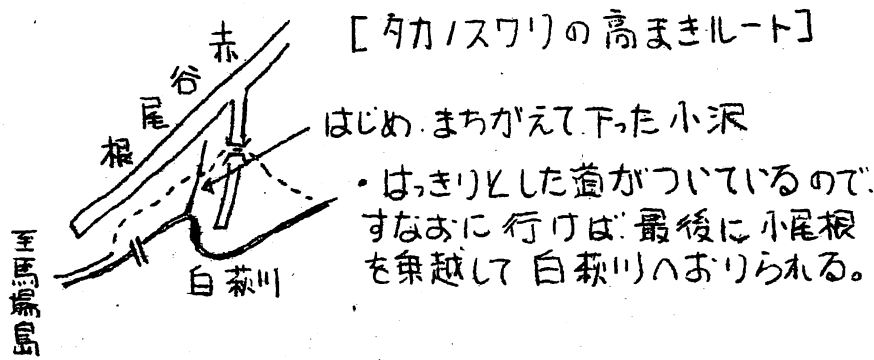 [タカノスワリの高まきルート]
赤谷尾根
はじめ、まちがえて下った小沢
・はっきりとした道がついているので、
すなおに行けば、最後に小尾根
を乗越して白萩川へおりられる。
白萩川
至馬場島